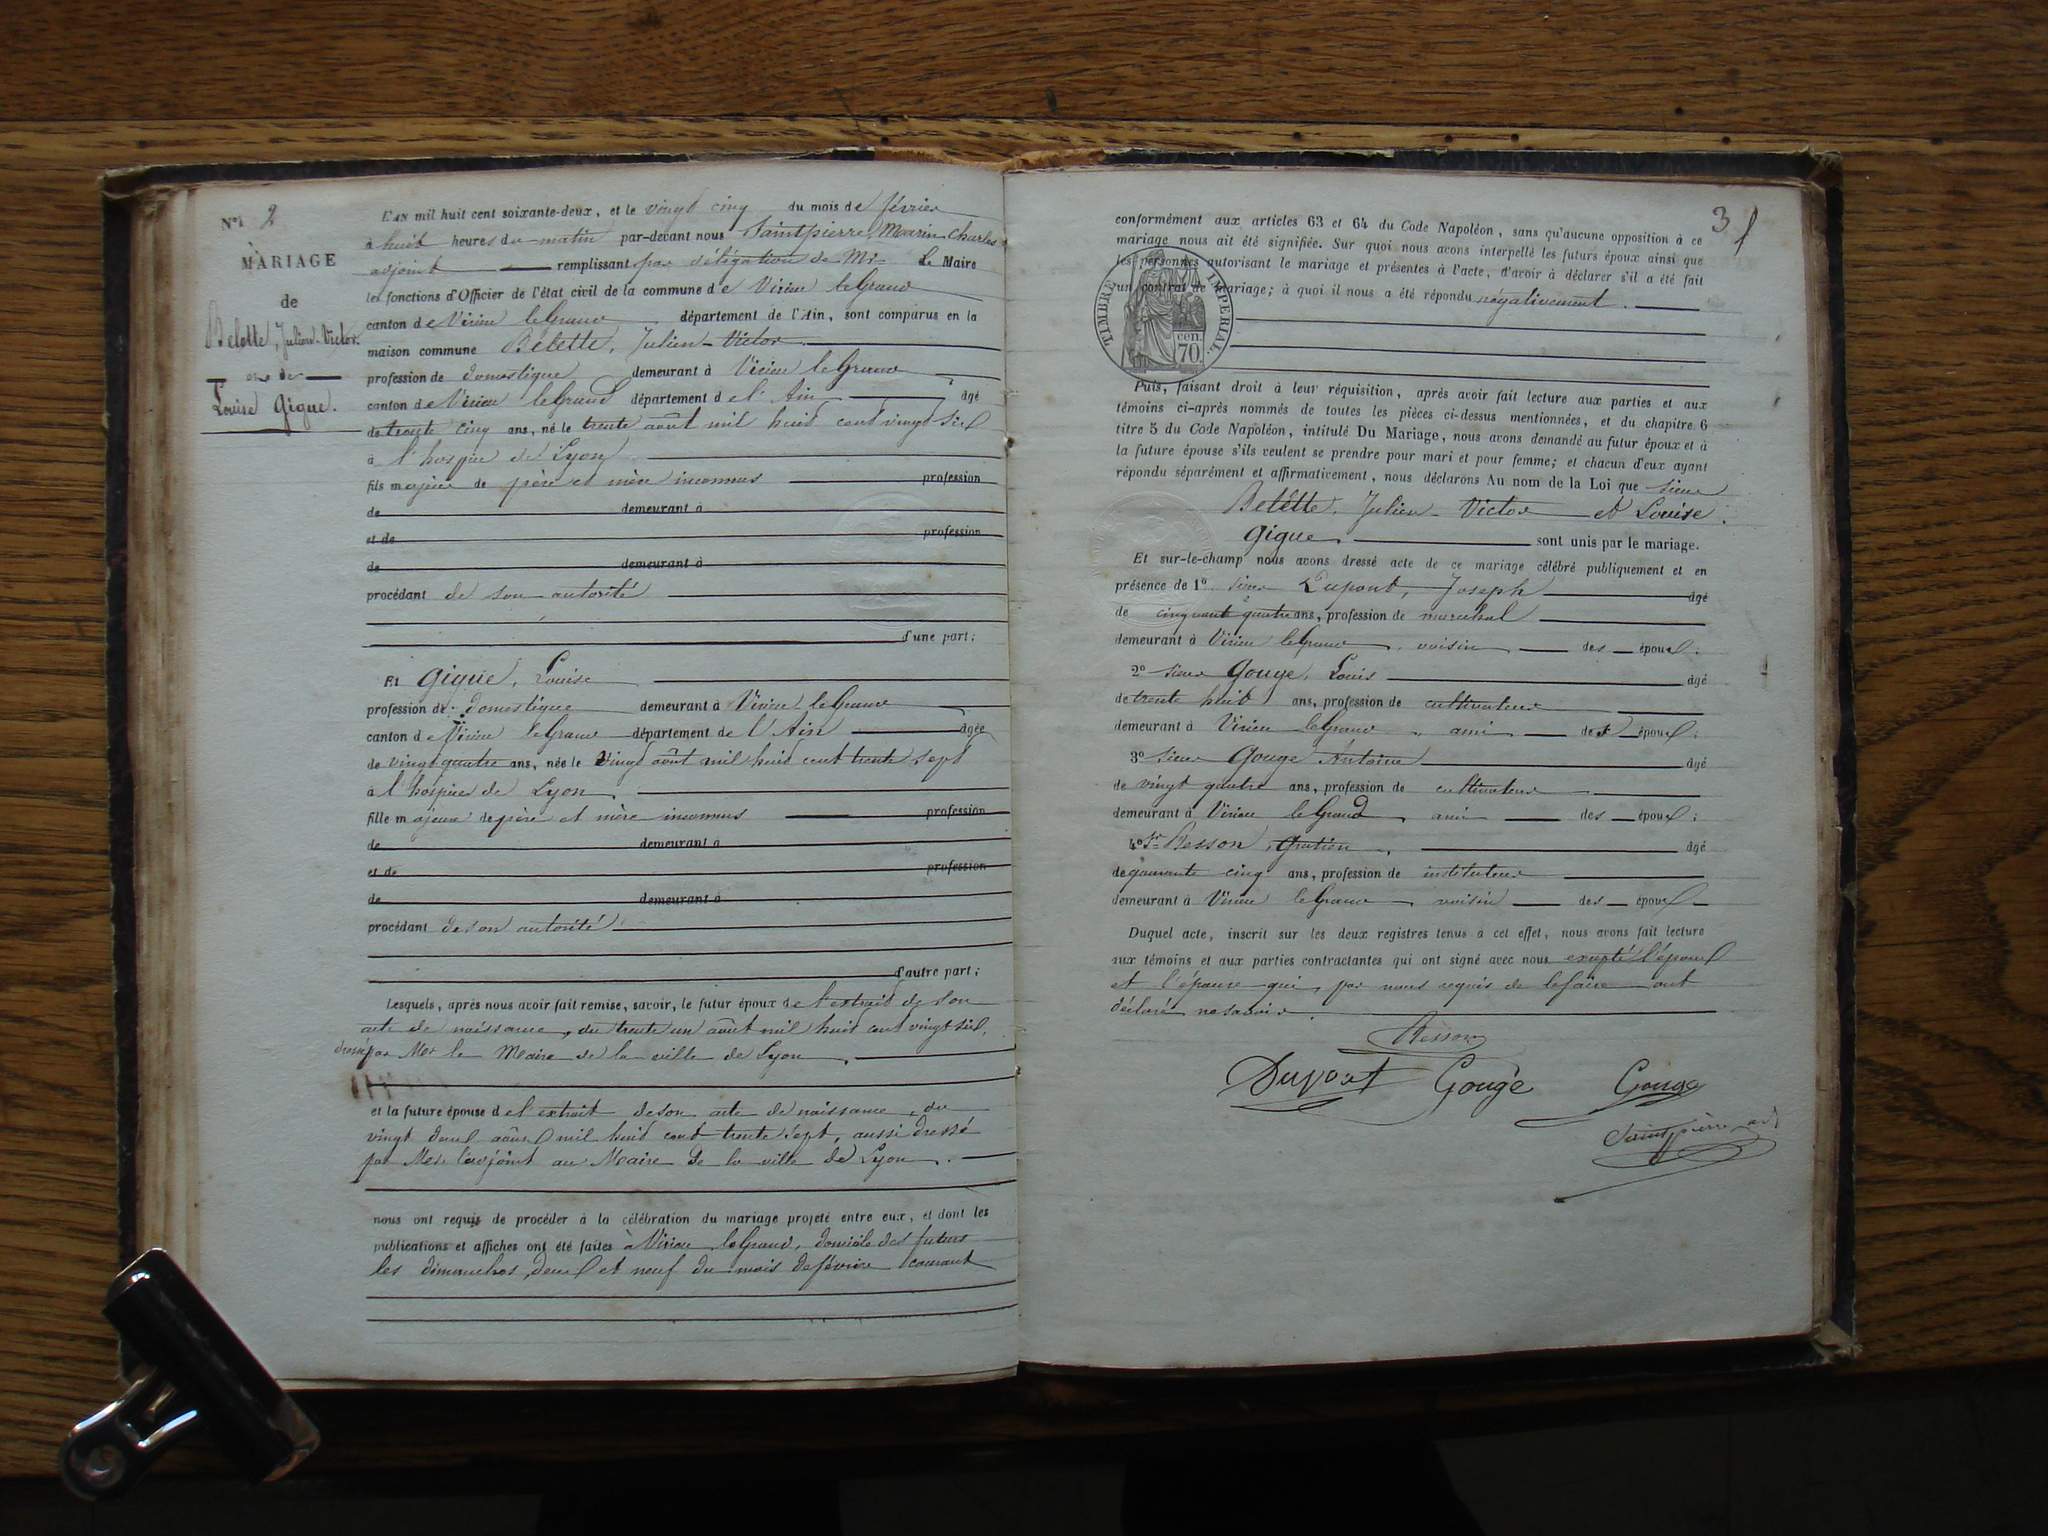 N° 2
MARIAGE
de
Belette, Julien-Victor.
avec
Louise Gigue.
L'AN mil huit cent soixante-deux, et le vingt cinq du mois de février
à huit heures du matin par-devant nous Saintpierre, Marin Charles
adjoint remplissant par délégation de Mr le Maire
les fonctions d'Officier de l'état civil de la commune de Virieu le Grand
canton de Virieu le Grand département de l'Ain, sont comparus en la
maison commune Belette, Julien-Victor
profession de domestique demeurant à Virieu le Grand
canton de Virieu le Grand département de l'Ain âgé
de trente cinq ans, né le trente août mil huit cent vingt six
à l'hospice de Lyon
fils majeur de père et mère inconnus profession
de demeurant à
et de profession
de demeurant à
procédant de son autorité
d'une part;
Et Gigue, Louise
profession de domestique demeurant à Virieu le Grand
canton de Virieu le Grand département de l'Ain âgée
de vingt quatre ans, née le vingt août mil huit cent trente sept
à l'hospice de Lyon.
fille majeure de père et mère inconnus profession
de demeurant à
et de profession
de demeurant à
procédant de son autorité
d'autre part;
Lesquels, après nous avoir fait remise, savoir, le futur époux de l'extrait de son
acte de naissance, du trente un août mil huit cent vingt six,
dressé par Mr le Maire de la ville de Lyon.
et la future épouse de l'extrait de son acte de naissance, du
vingt deux août mil huit cent trente sept, aussi dressé
par Mr l'adjoint au Maire de la ville de Lyon.
nous ont requis de procéder à la célébration du mariage projeté entre eux, et dont les
publications et affiches ont été faites à Virieu le Grand, domicile des futurs
les dimanches, deux et neuf du mois de février courant
3
conformément aux articles 63 et 64 du Code Napoléon, sans qu'aucune opposition à ce
mariage nous ait été signifiée. Sur quoi nous avons interpellé les futurs époux ainsi que
les personnes autorisant le mariage et présentes à l'acte, d'avoir à déclarer s'il a été fait
un contrat de mariage; à quoi il nous a été répondu négativement.
TIMBRE IMPERIAL.
70 cen.
Puis, faisant droit à leur réquisition, après avoir fait lecture aux parties et aux
témoins ci-après nommés de toutes les pièces ci-dessus mentionnées, et du chapitre 6
titre 5 du Code Napoléon, intitulé Du Mariage, nous avons demandé au futur époux et à
la future épouse s'ils veulent se prendre pour mari et pour femme; et chacun d'eux ayant
répondu séparément et affirmativement, nous déclarons Au nom de la Loi que sieur
Belette, Julien-Victor et Louise
Gigue. sont unis par le mariage.
Et sur-le-champ nous avons dressé acte de ce mariage célébré publiquement et en
présence de 1° sieur Dupont, Joseph âgé
de cinquante quatre ans, profession de maréchal
demeurant à Virieu le Grand, voisin des époux;
2° sieur Gouge, Louis âgé
de trente huit ans, profession de cultivateur
demeurant à Virieu le Grand, ami des époux;
3° sieur Gouge Antoine âgé
de vingt quatre ans, profession de cultivateur
demeurant à Virieu le Grand, ami des époux;
4° Sr Besson, Gratien, âgé
de quarante cinq ans, profession de instituteur
demeurant à Virieu le Grand, voisin des époux
Duquel acte, inscrit sur les deux registres tenus à cet effet, nous avons fait lecture
aux témoins et aux parties contractantes qui ont signé avec nous excepté l'époux
et l'épouse qui, par nous requis de le faire ont
déclaré ne savoir.
Besson
Dupont Gouge Gouge
Saintpierre, adj